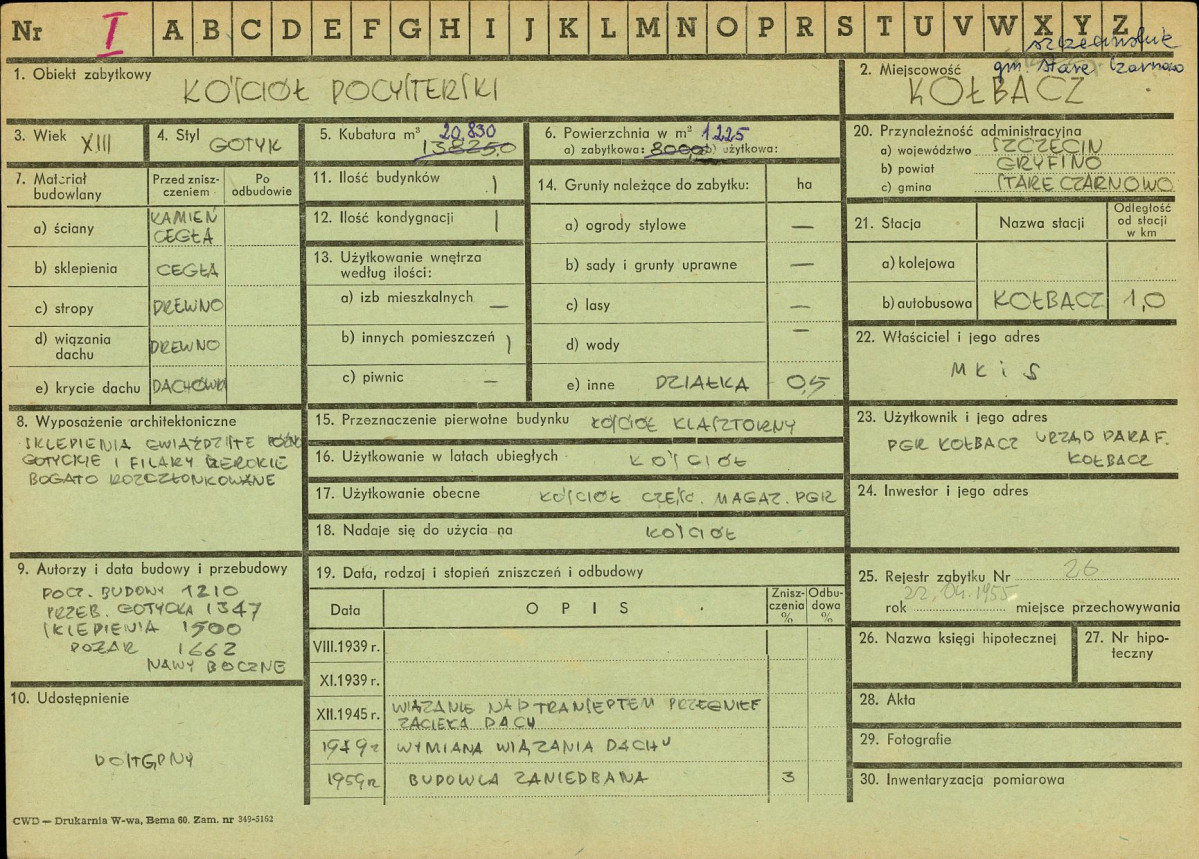 Nr I A B C D E F G H I J K L M N O P R S T U V W X Y Z
szczecińskie
gm. Stare Czarnowo
1. Obiekt zabytkowy
KOŚCIÓŁ POCYSTERSKI
2. Miejscowość
KOŁBACZ
3. Wiek XIII
4. Styl GOTYK
5. Kubatura m³ 20,830
13825,0
6. Powierzchnia w m² 1225
a) zabytkowa: 800,0 b) użytkowa:
20. Przynależność administracyjna
a) województwo SZCZECIN
b) powiat GRYFINO
c) gmina STARE CZARNOWO
7. Materiał budowlany
Przed zniszczeniem
Po odbudowie
a) ściany KAMIEŃ
CEGŁA
b) sklepienia CEGŁA
c) stropy DREWNO
d) wiązania dachu DREWNO
e) krycie dachu DACHÓWK
11. Ilość budynków 1
12. Ilość kondygnacji 1
13. Użytkowanie wnętrza według ilości:
a) izb mieszkalnych —
b) innych pomieszczeń 1
c) piwnic —
14. Grunty należące do zabytku: ha
a) ogrody stylowe —
b) sady i grunty uprawne —
c) lasy —
d) wody —
e) inne DZIAŁKA 0,5
21. Stacja Nazwa stacji Odległość od stacji w km
a) kolejowa
b) autobusowa KOŁBACZ 1,0
22. Właściciel i jego adres
MKiS
8. Wyposażenie architektoniczne
SKLEPIENIA GWIAŹDZISTE PÓŹNO
GOTYCKIE I FILARY SZEROKIE
BOGATO ROZCZŁONKOWANE
15. Przeznaczenie pierwotne budynku KOŚCIÓŁ KLASZTORNY
16. Użytkowanie w latach ubiegłych KOŚCIÓŁ
17. Użytkowanie obecne KOŚCIÓŁ CZĘŚC. MAGAZ. PGR
18. Nadaje się do użycia na KOŚCIÓŁ
23. Użytkownik i jego adres
PGR KOŁBACZ URZĄD PARAF.
KOŁBACZ
24. Inwestor i jego adres
9. Autorzy i data budowy i przebudowy
POCZ. BUDOWY 1210
PRZEB. GOTYCKA 1347
SKLEPIENIA 1500
POŻAR 1662
NAWY BOCZNE
10. Udostępnienie
DOSTĘPNY
19. Data, rodzaj i stopień zniszczeń i odbudowy
Data OPIS Zniszczenia % Odbudowa %
VIII.1939 r.
XI.1939 r.
XII.1945 r. WIĄZANIE NAD TRANSEPTEM PRZEGNIEŁ
ZACIEKA DACH
1949 r WYMIANA WIĄZANIA DACHU
1959 r. BUDOWLA ZANIEDBANA 3
25. Rejestr zabytku Nr 26
22.04.1955
rok miejsce przechowywania
26. Nazwa księgi hipotecznej
27. Nr hipoteczny
28. Akta
29. Fotografie
30. Inwentaryzacja pomiarowa
CWD — Drukarnia W-wa, Bema 60. Zam. nr 349-5162